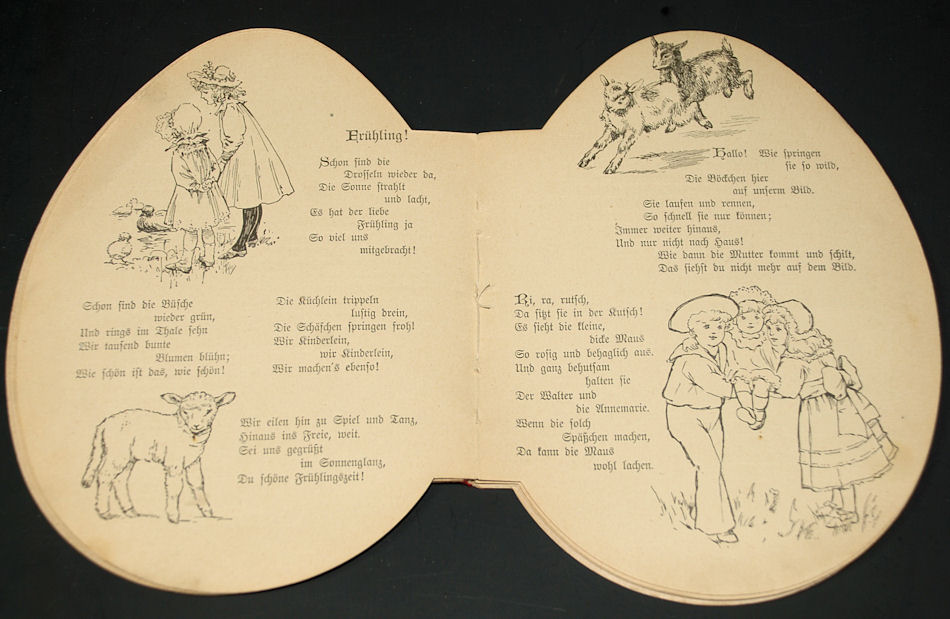 Frühling!
Schon sind die
Drosseln wieder da,
Die Sonne strahlt
und lacht,
Es hat der liebe
Frühling ja
So viel uns
mitgebracht!
Schon sind die Büsche
wieder grün,
Und rings im Thale sehn
Wir tausend bunte
Blumen blühn;
Wie schön ist das, wie schön!
Die Küchlein trippeln
lustig drein,
Die Schäfchen springen froh!
Wir Kinderlein,
wir Kinderlein,
Wir machen's ebenso!
Wir eilen hin zu Spiel und Tanz,
Hinaus ins Freie, weit.
Sei uns gegrüßt
im Sonnenglanz,
Du schöne Frühlingszeit!
Hallo! Wie springen
sie so wild,
Die Böckchen hier
auf unserm Bild.
Sie laufen und rennen,
So schnell sie nur können;
Immer weiter hinaus,
Und nur nicht nach Haus!
Wie dann die Mutter kommt und schilt,
Das siehst du nicht mehr auf dem Bild.
Ri, ra, rutsch,
Da sitzt sie in der Kutsch!
Es sieht die kleine,
dicke Maus
So rosig und behaglich aus.
Und ganz behutsam
halten sie
Der Walter und
die Annemarie.
Wenn die solch
Späßchen machen,
Da kann die Maus
wohl lachen.